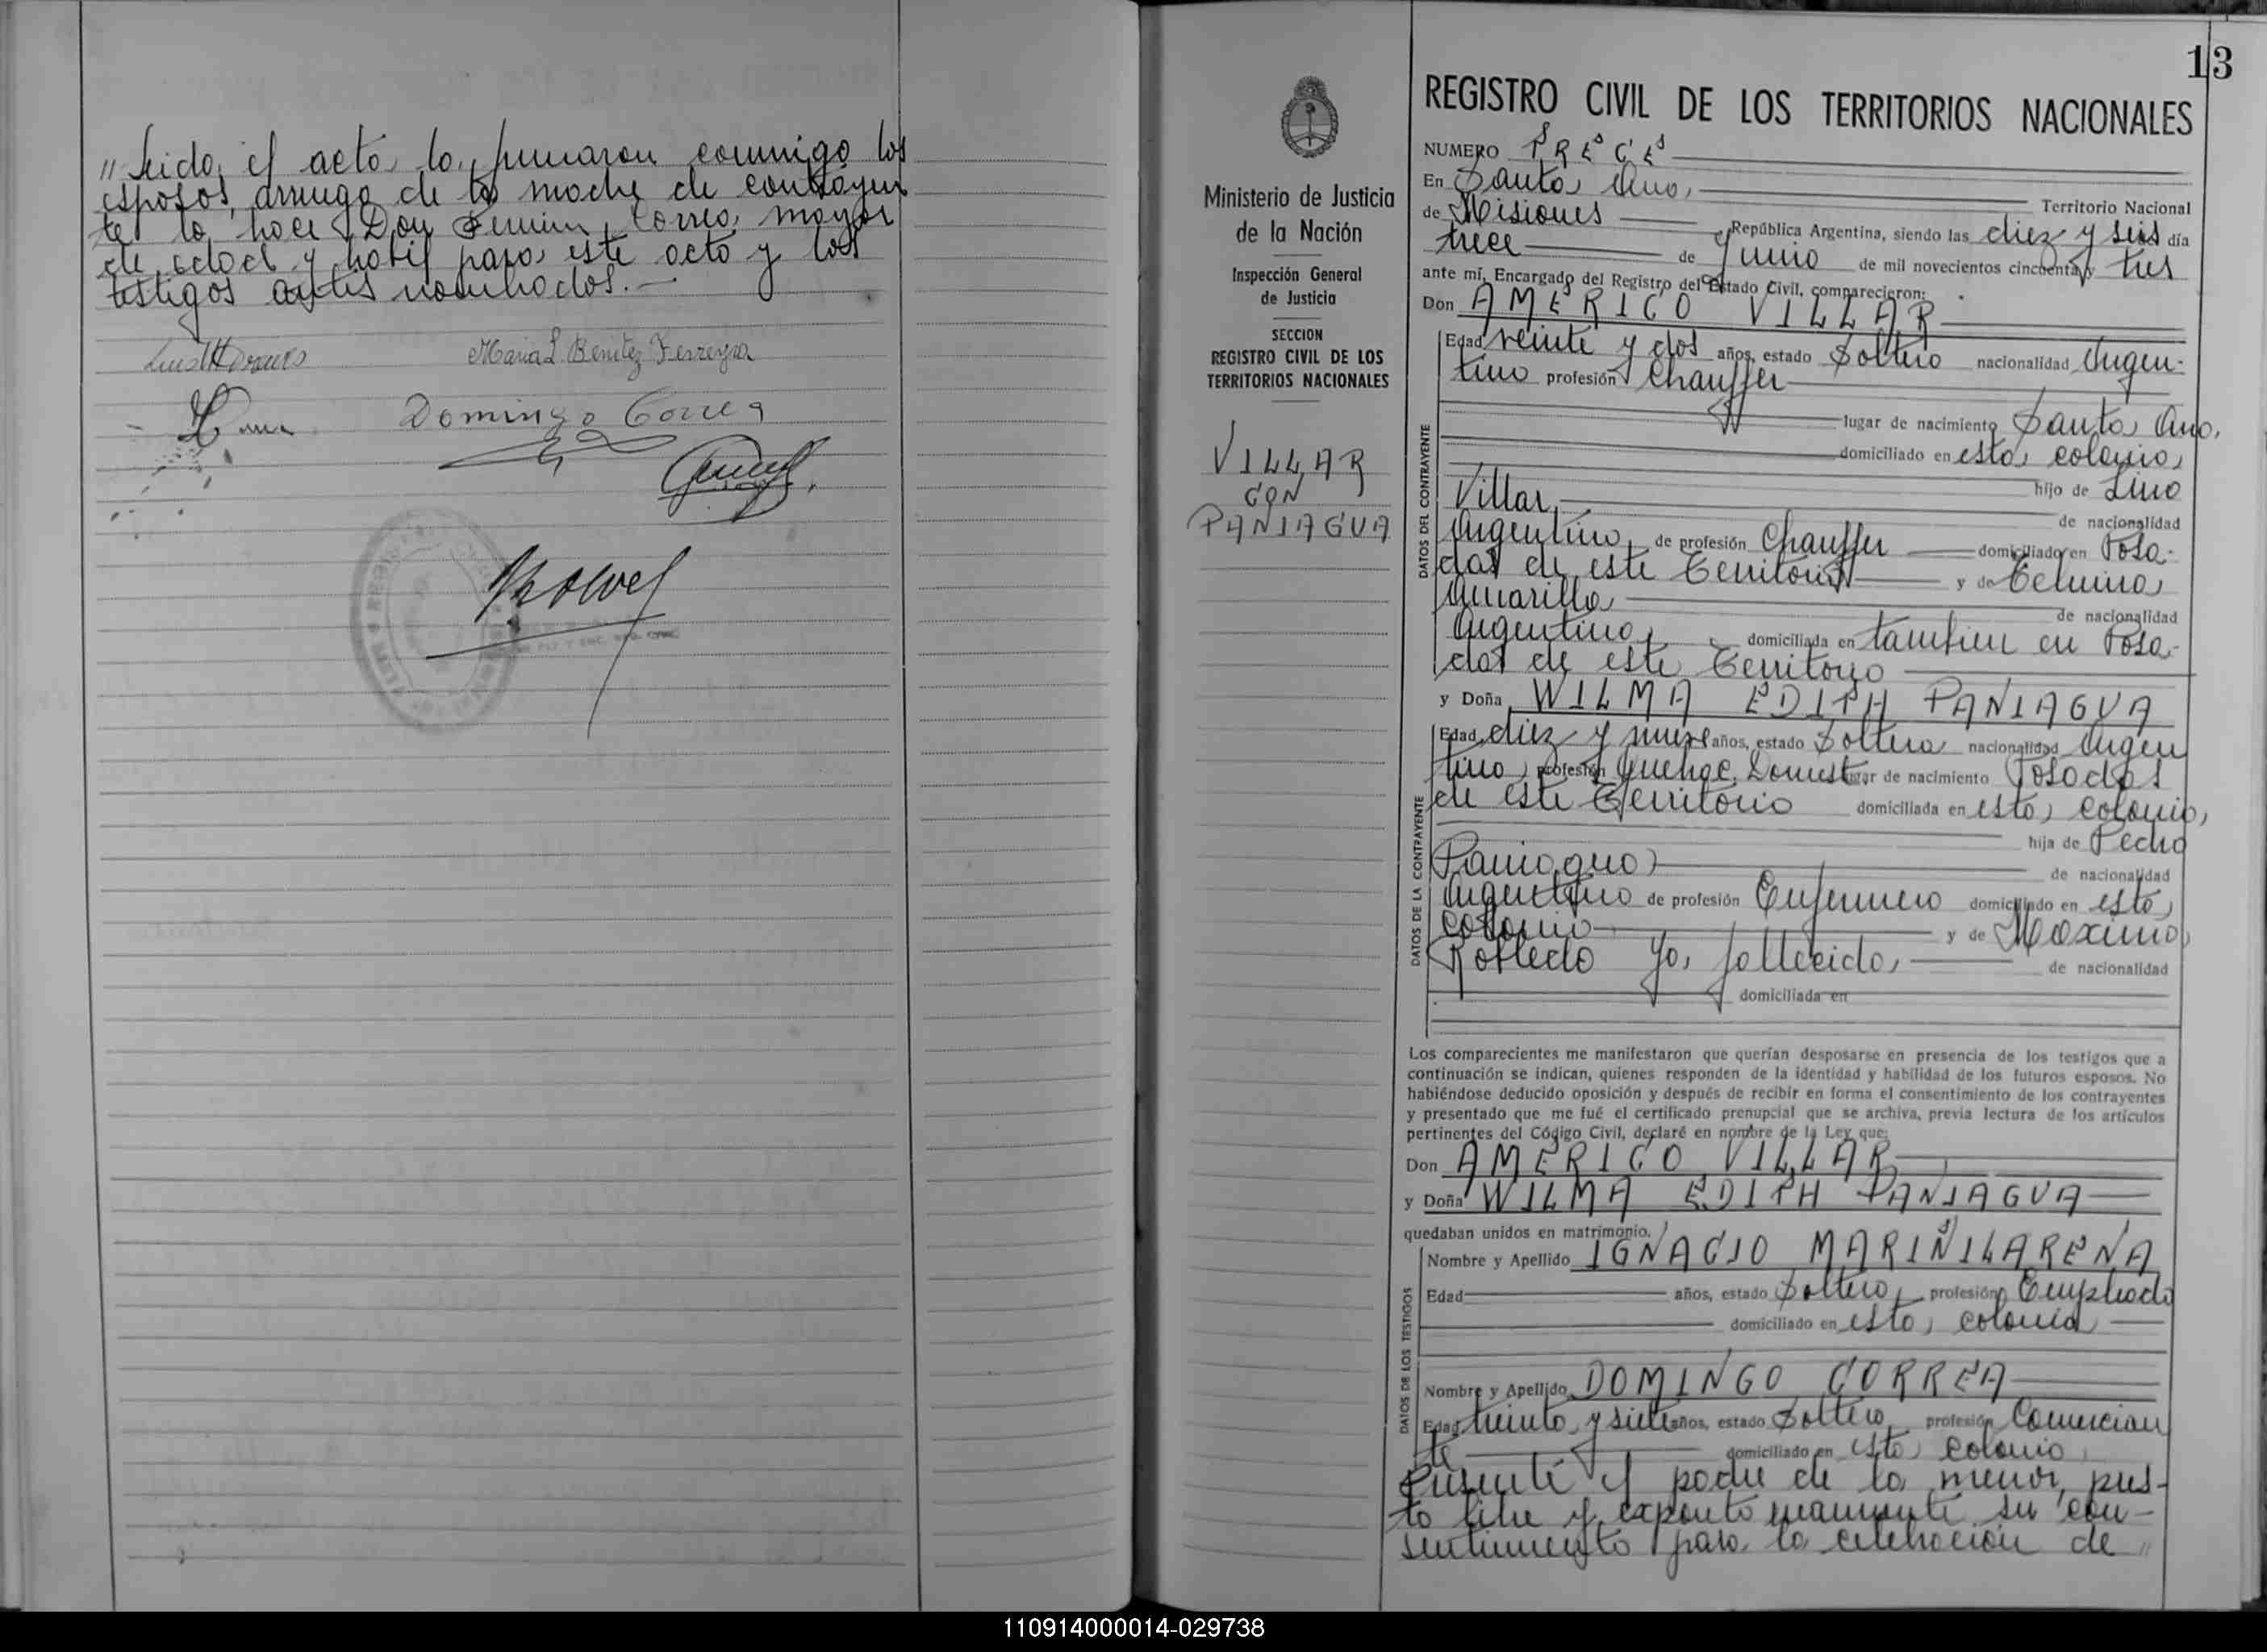 " Leido, el acto, lo, firmaron conmigo los
esposos, arruego de la madre de contrayen
te lo hace Don Fermin Correa, mayor
de edad y habil para este acto y los
testigos antes nombrados.—
Maria L. Benitez Ferreyra
Domingo Correa
13
REGISTRO CIVIL DE LOS TERRITORIOS NACIONALES
Ministerio de Justicia
de la Nación
Inspección General
de Justicia
SECCION
REGISTRO CIVIL DE LOS
TERRITORIOS NACIONALES
VILLAR
CON
PANIAGUA
NUMERO TRECE
En Santa Ana, Territorio Nacional
de Misiones República Argentina, siendo las diez y seis día
trece de Junio de mil novecientos cincuenta y tres
ante mí, Encargado del Registro del Estado Civil, comparecieron:
Don AMERICO VILLAR
DATOS DEL CONTRAYENTE
Edad veinte y dos años, estado Soltero nacionalidad Argen-
tino profesión Chauffer
lugar de nacimiento Santa Ana,
domiciliado en esta, colonia,
hijo de Lino
Villar, de nacionalidad
Argentino, de profesión Chauffer domiciliado en Posa-
das de este Territorio y de Celmira
Amarilla, de nacionalidad
Argentina, domiciliada en tambien en Posa-
das de este Territorio
y Doña WILMA EDITH PANIAGUA
DATOS DE LA CONTRAYENTE
Edad diez y nueve años, estado Soltera nacionalidad Argen
tina, profesión Quehac. Domest. lugar de nacimiento Posadas
de este Territorio domiciliada en esta, colonia,
hija de Pedro
Paniagua, de nacionalidad
Argentino de profesión Enfermero domiciliado en esta,
colonia y de Maxima,
Robledo Ya, fallecida, de nacionalidad
domiciliada en
Los comparecientes me manifestaron que querían desposarse en presencia de los testigos que a
continuación se indican, quienes responden de la identidad y habilidad de los futuros esposos. No
habiéndose deducido oposición y después de recibir en forma el consentimiento de los contrayentes
y presentado que me fué el certificado prenupcial que se archiva, previa lectura de los artículos
pertinentes del Código Civil, declaré en nombre de la Ley que:
Don AMERICO VILLAR
y Doña WILMA EDITH PANIAGUA
quedaban unidos en matrimonio.
DATOS DE LOS TESTIGOS
Nombre y Apellido IGNACIO MARIÑILARENA
Edad años, estado Soltero, profesión Empleado
domiciliado en esta, colonia
Nombre y Apellido DOMINGO CORREA
Edad treinta y siete años, estado Soltero, profesión Comercian
te domiciliado en esta, colonia
Presente el padre de la menor, pres-
to libre y expontaneamente su con-
sentimiento para la celebracion de "
110914000014-029738